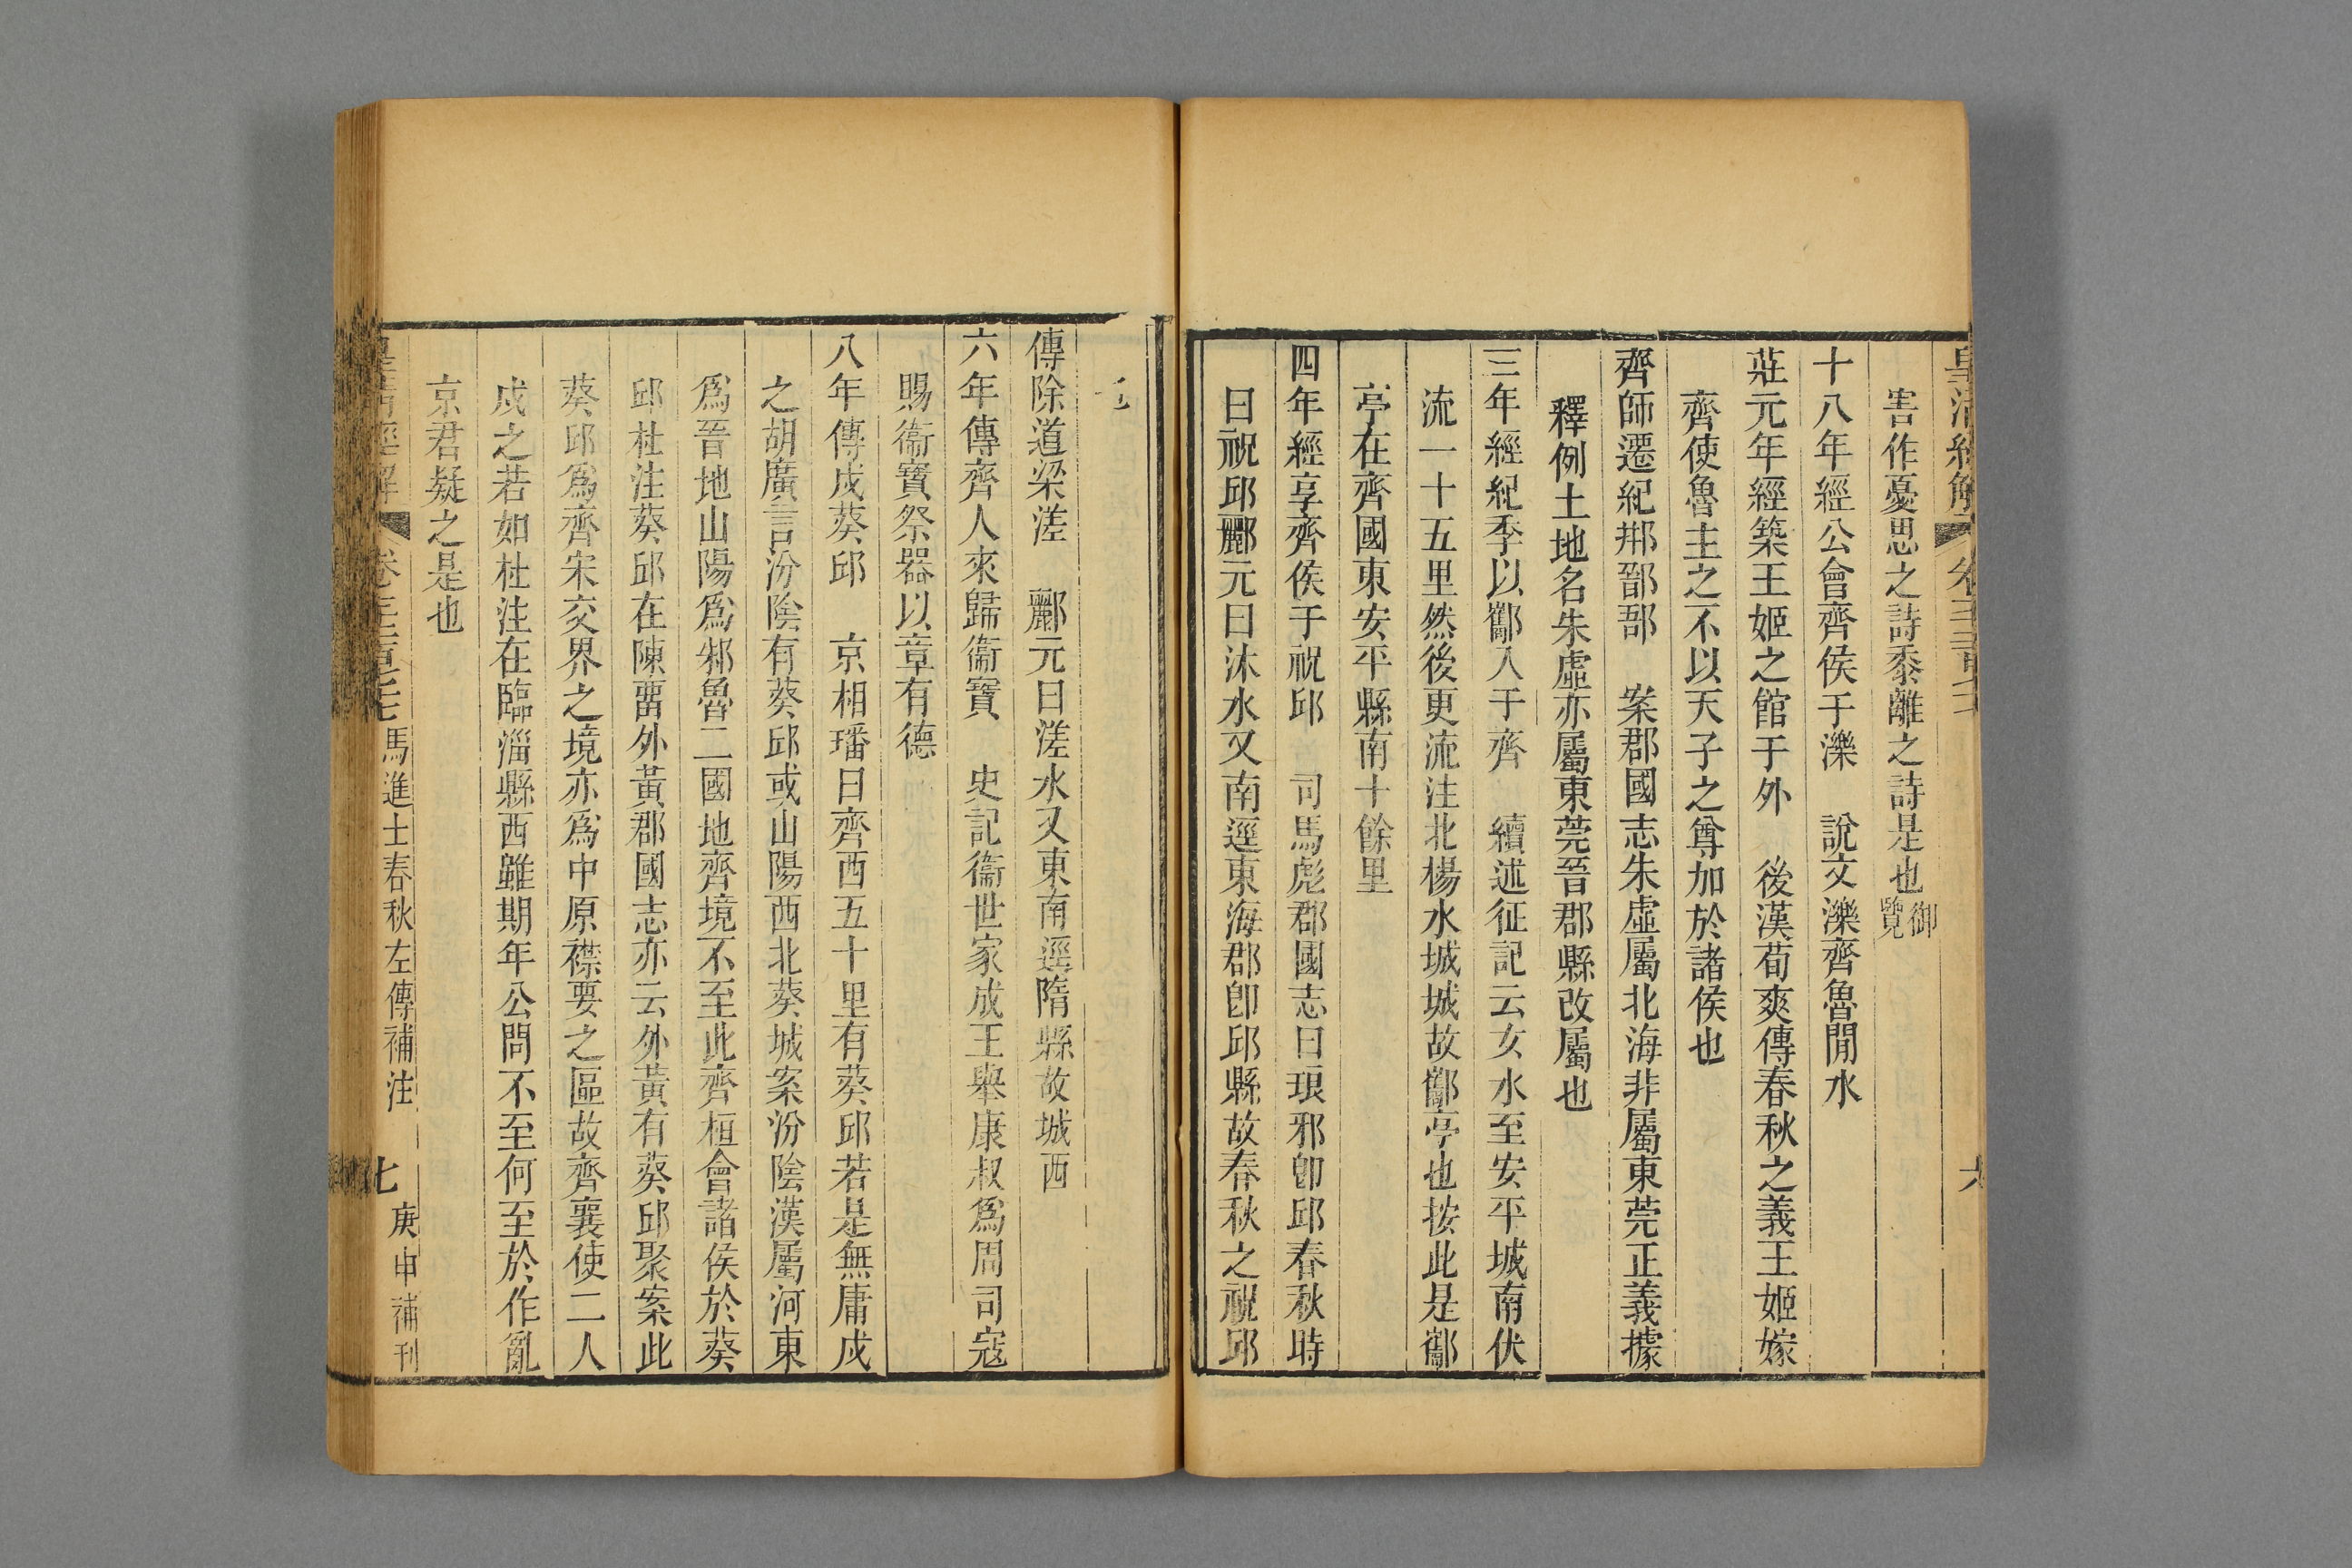 皇清經解
害作憂思之詩黍離之詩是也御覽
十八年經公會齊侯于濼　說文濼齊魯閒水
莊元年經築王姬之館于外　後漢荀爽傳春秋之義王姬嫁
齊使魯主之不以天子之尊加於諸侯也
齊師遷紀郱鄑郚　案郡國志朱虛屬北海非屬東莞正義據
釋例土地名朱虛亦屬東莞晉郡縣改屬也
三年經紀季以酅入于齊　續述征記云女水至安平城南伏
流一十五里然後更流注北楊水城城故酅亭也按此是酅
亭在齊國東安平縣南十餘里
四年經享齊侯于祝邱　司馬彪郡國志曰琅邪卽邱春秋時
曰祝邱酈元曰沐水又南逕東海郡卽邱縣故春秋之祝邱
也
傳除道梁溠　酈元曰溠水又東南逕隋縣故城西
六年傳齊人來歸衞寶　史記衞世家成王舉康叔爲周司寇
賜衞寶祭器以章有德
八年傳戍葵邱　京相璠曰齊西五十里有葵邱若是無庸戍
之胡廣言汾陰有葵邱或山陽西北葵城案汾陰漢屬河東
爲晉地山陽爲邾魯二國地齊境不至此齊桓會諸侯於葵
邱杜注葵邱在陳畱外黃郡國志亦云外黃有葵邱聚案此
葵邱爲齊宋交界之境亦爲中原襟要之區故齊襄使二人
戍之若如杜注在臨淄縣西雖期年公問不至何至於作亂
京君疑之是也
馬進士春秋左傳補注　七　庚申補刊